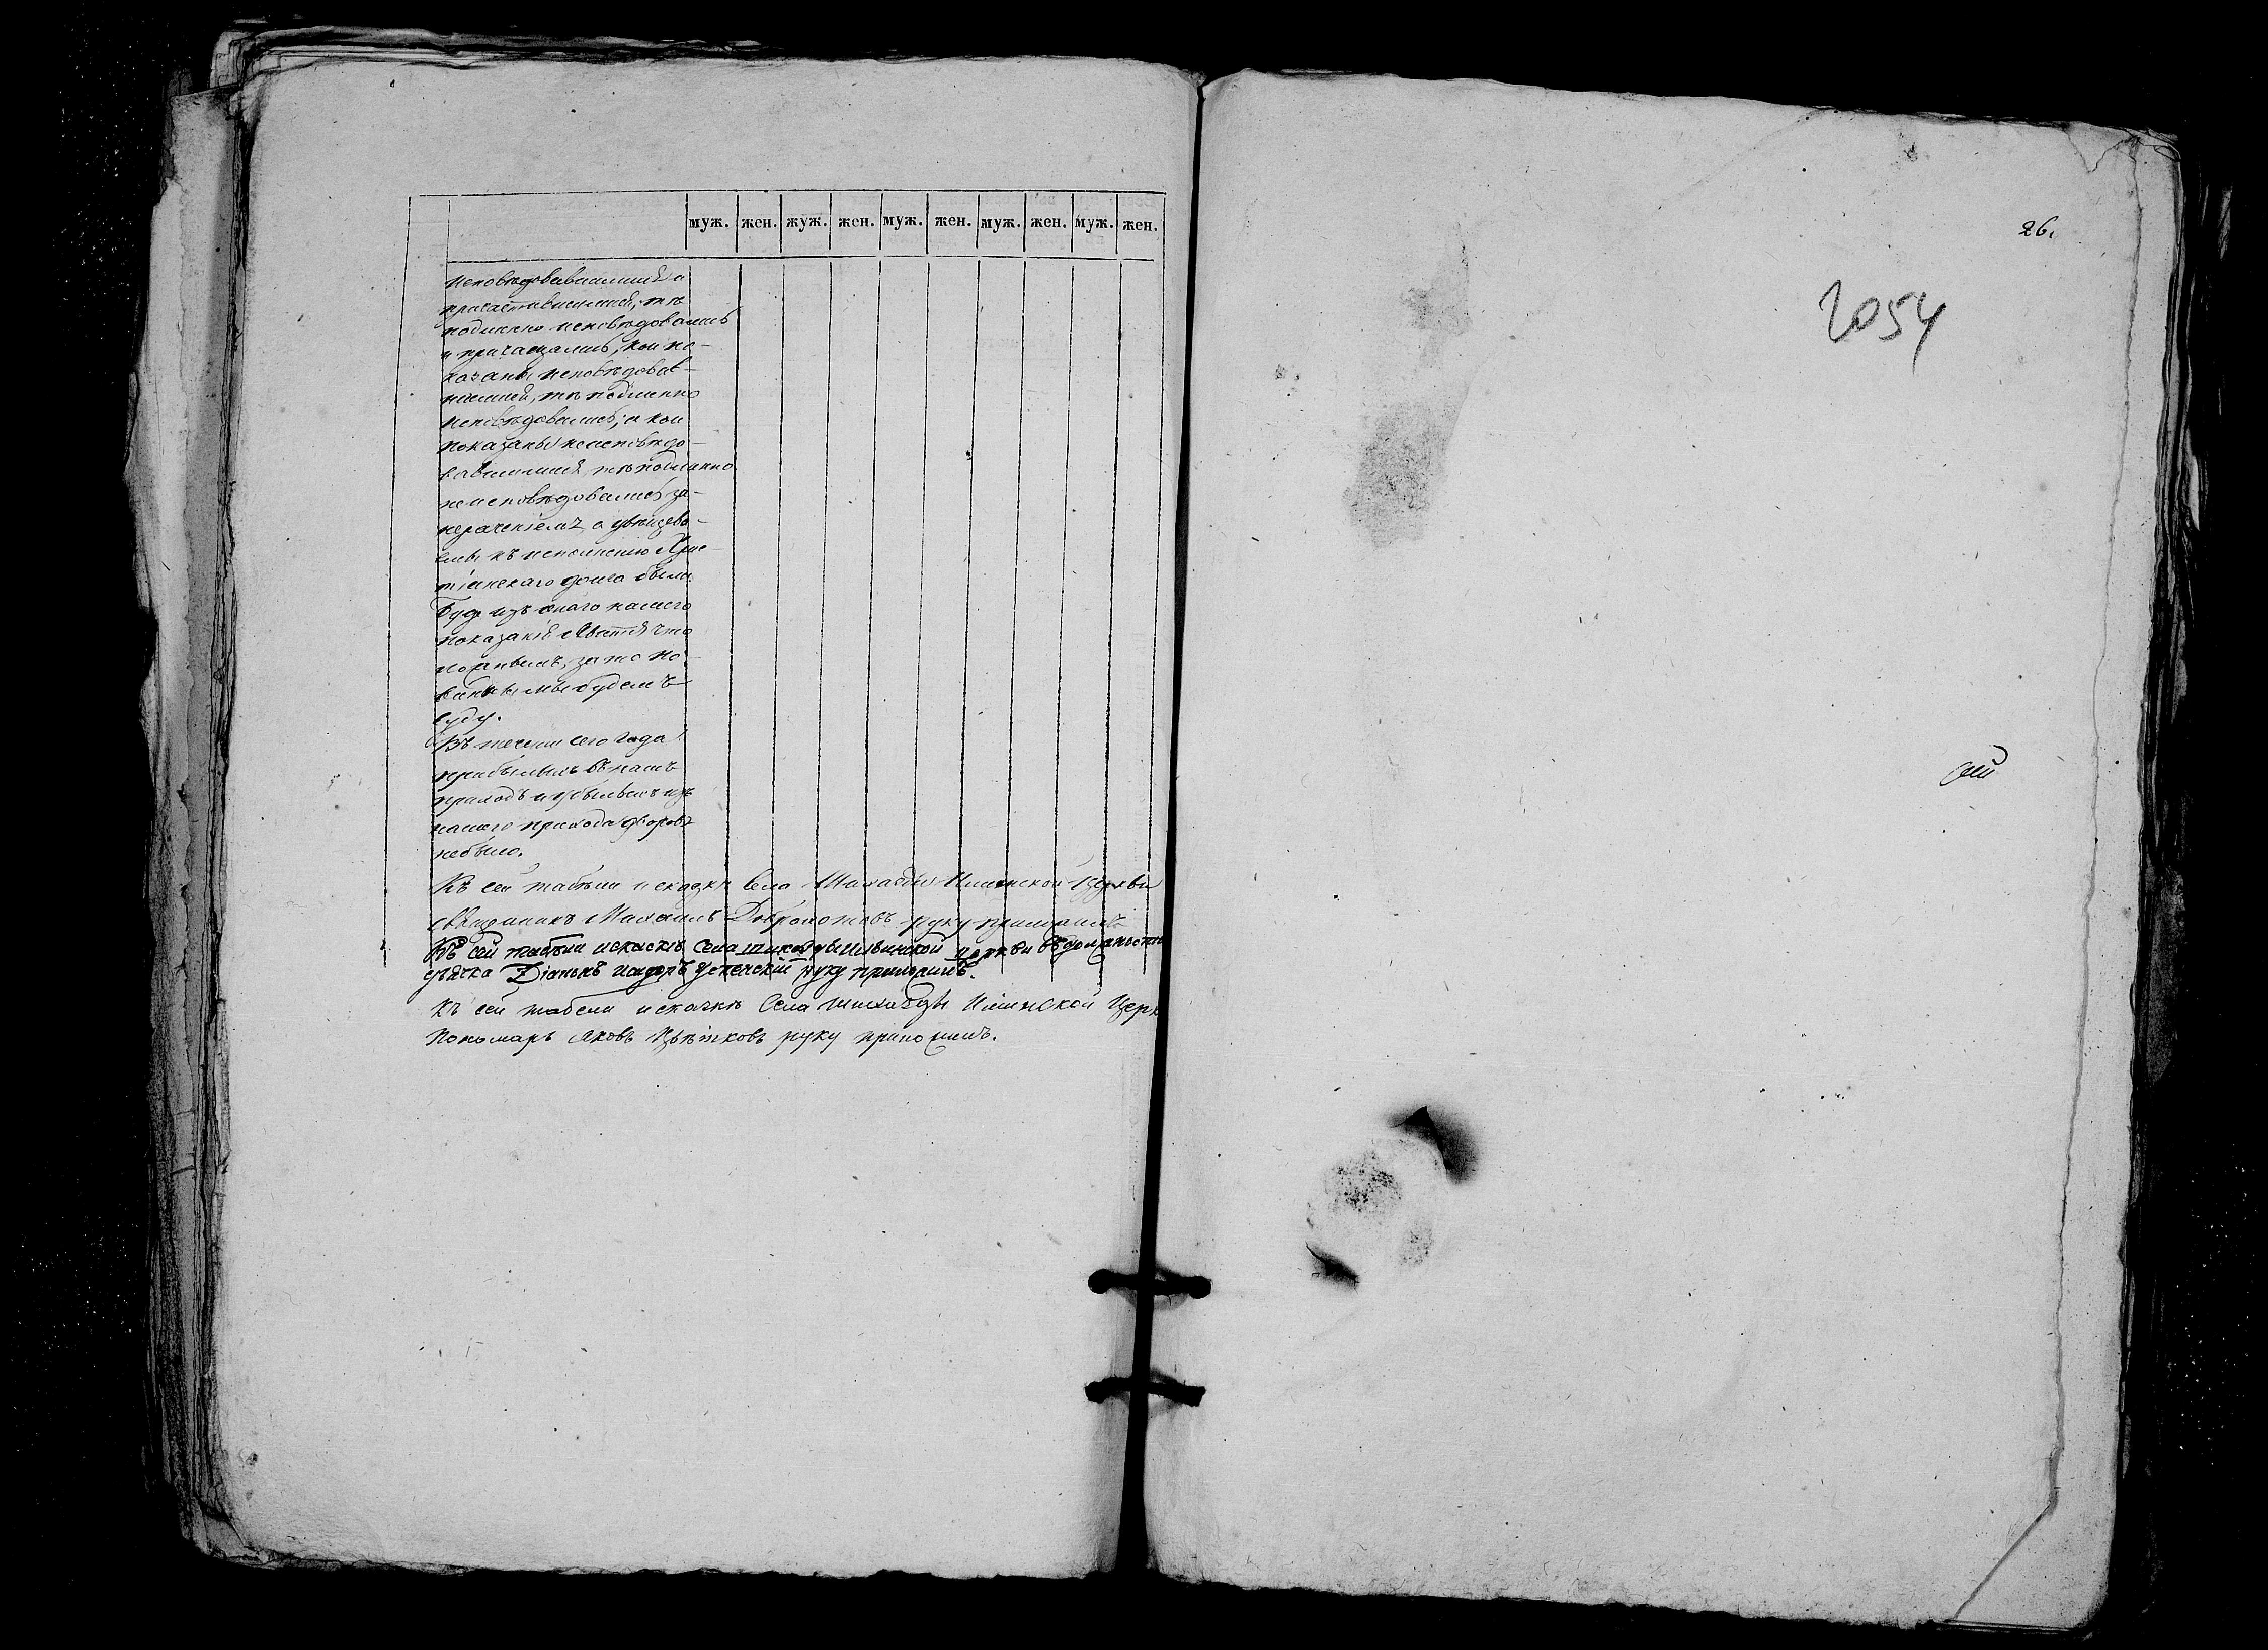 муж. жен. жуж. жен. муж. жен. муж. жен. муж. жен.
исповѣдовавшимися и
причастившимися, тѣ
подлинно исповѣдовались
и причащались; кои по-
казаны исповѣдовав-
шимися, тѣ подлинно
исповѣдовались; а кои
показаны неисповѣдо-
вавшимися, тѣ подлинно
неисповѣдовались за-
нераченіемъ, а увѣщева-
емы къ исполненію Хрис-
тіанскаго долга были.
Буде изъ онаго нашего
показанія явится что
ложнымъ, зато по-
винны мы будемъ
суду.
Въ течении сего года
прибылыхъ въ нашъ
приходъ и убылыхъ изъ
нашего прихода дворовъ
небыло.
Къ сей табели и сказки села Ильинской Церкви
священникъ Михаилъ Добротовъ руку приложилъ
Къ сей табели искаскѣ села Ильинской церкви въ должности
дьячка Діаконъ исидоръ Успенскій руку приложилъ.
Къ сей табели искаскѣ Села Ильинской Церк
Пономарь Яковъ Цвѣтковъ руку приложилъ.
26.
2054
сей